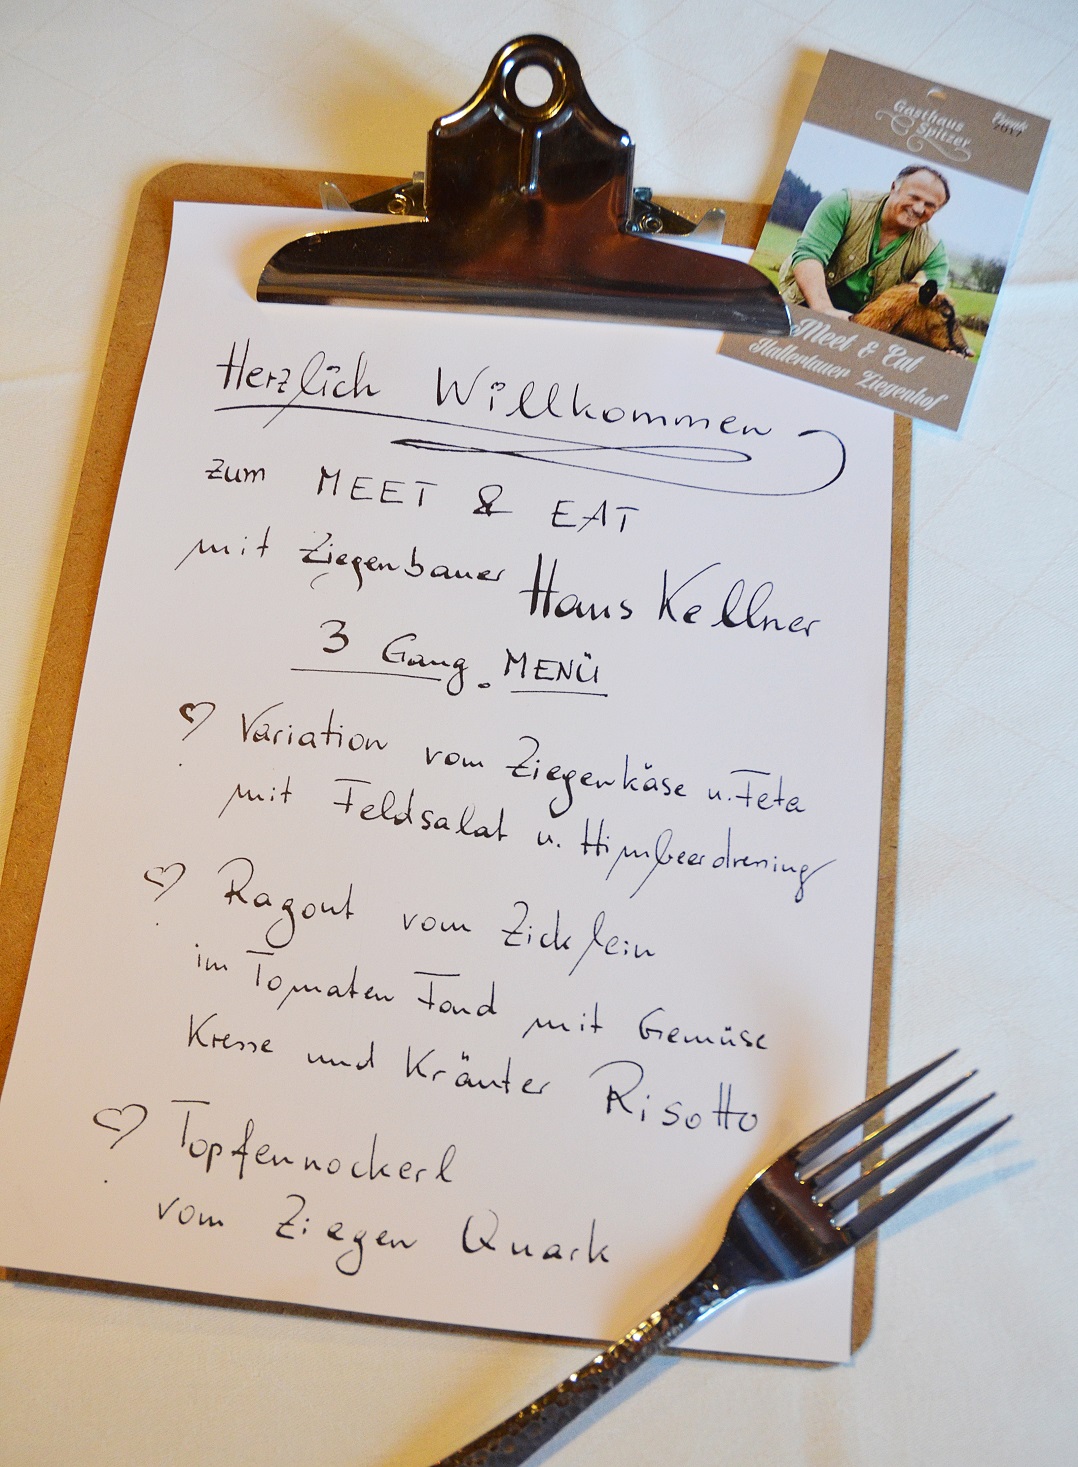 Gasthaus
Spitzer
Events
2017
Meet & Eat
Hallertauer Ziegenhof
Herzlich Willkommen
zum MEET & EAT
mit Ziegenbauer Hans Kellner
3 Gang. MENÜ
♡ Variation vom Ziegenkäse u. Feta
mit Feldsalat u. Himbeerdressing
♡ Ragout vom Zicklein
im Tomaten Fond mit Gemüse
Kresse und Kräuter Risotto
♡ Topfennockerl
vom Ziegen Quark